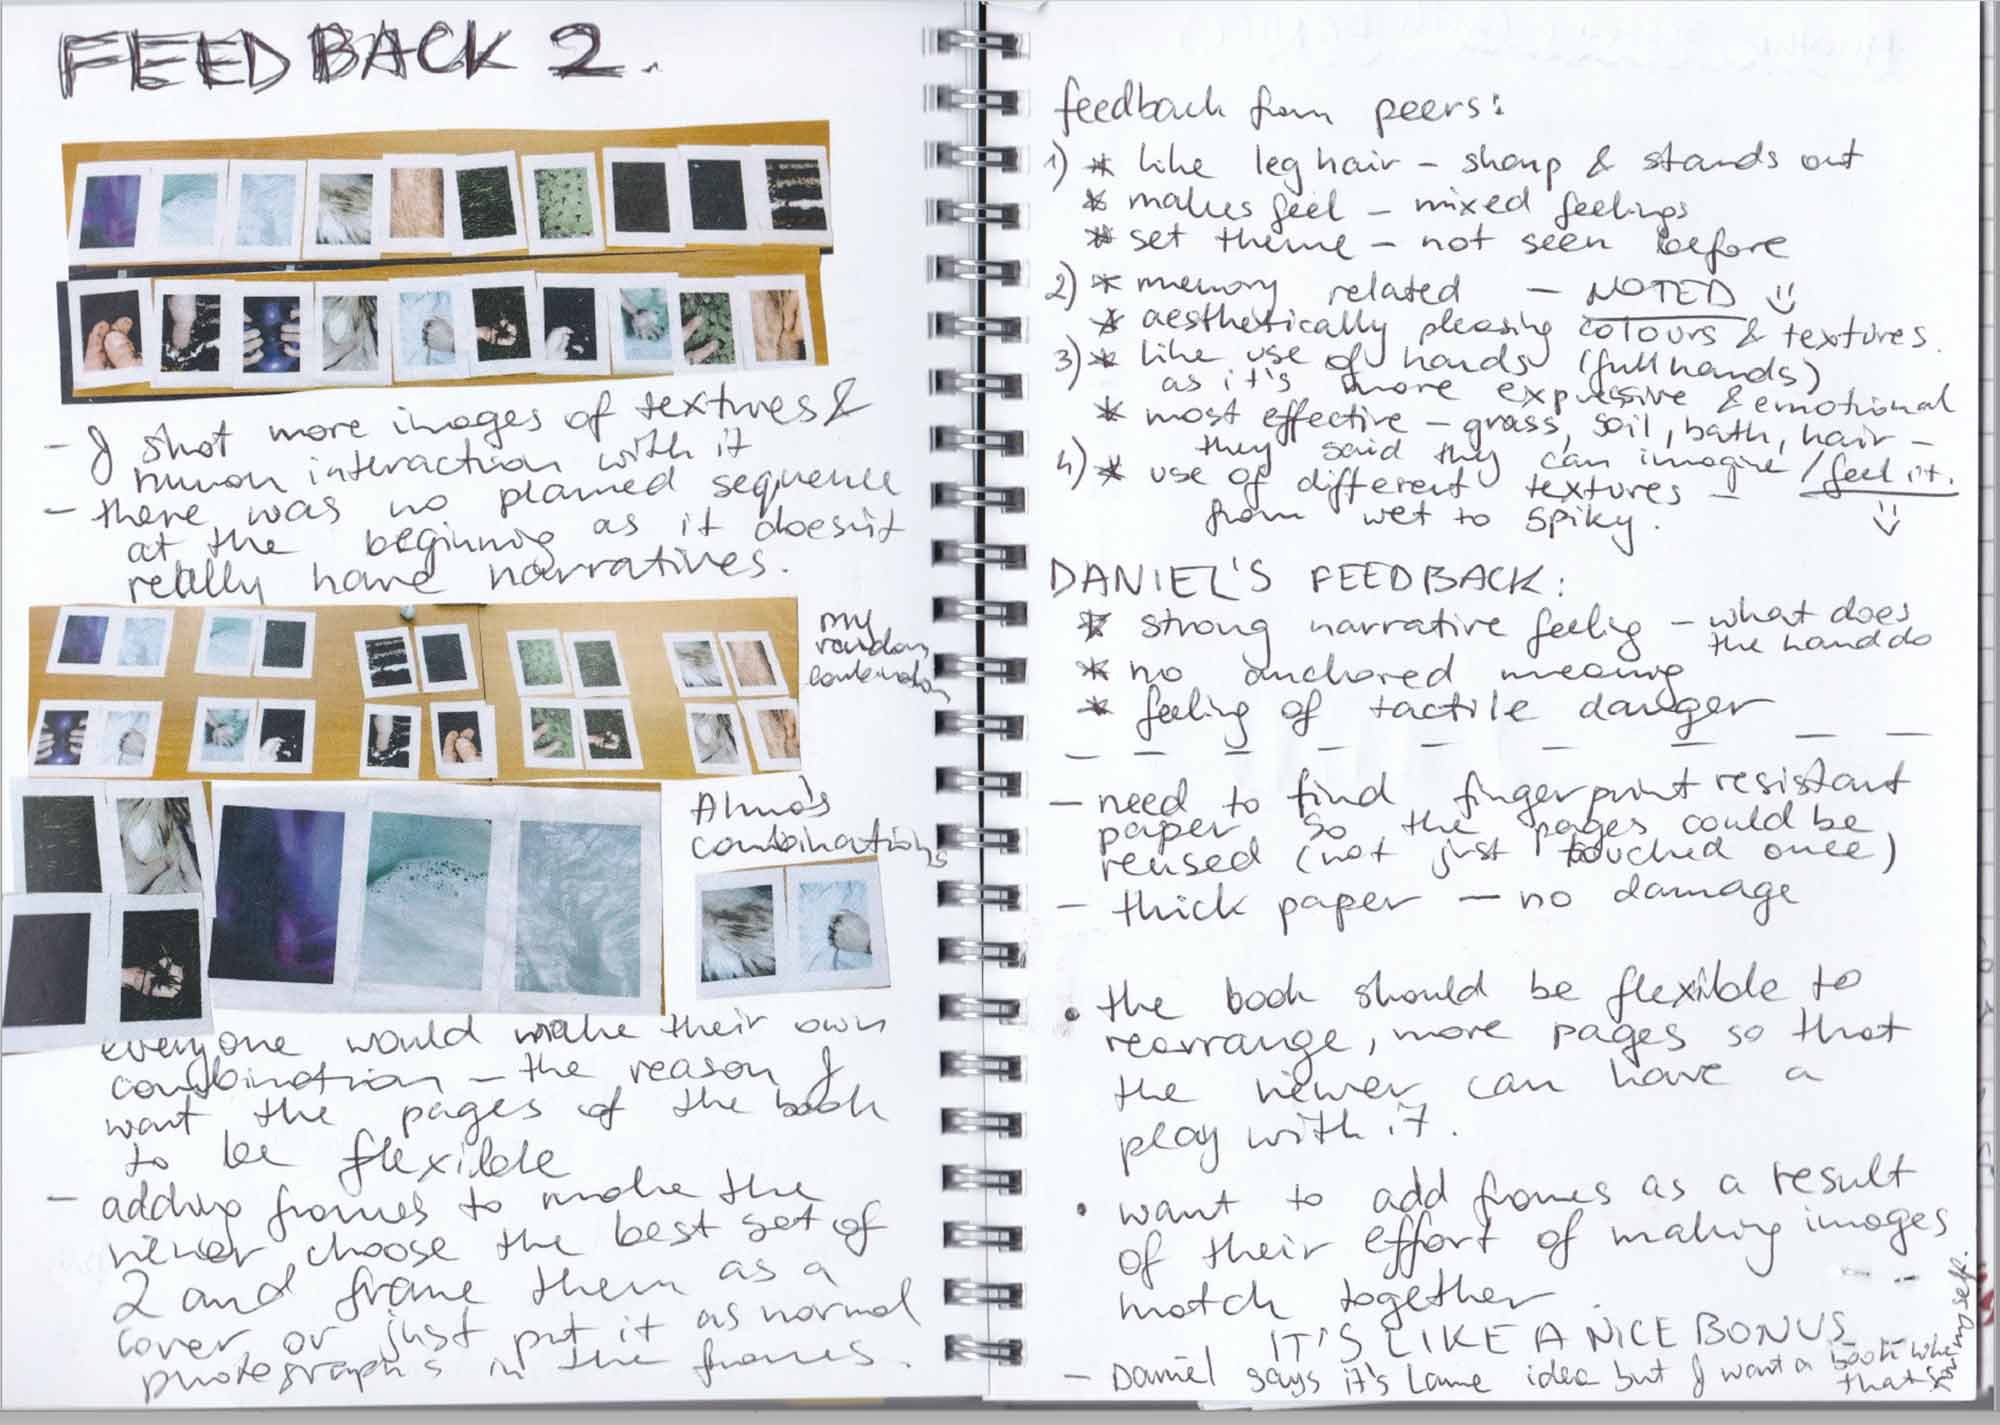 FEEDBACK 2.
- I shot more images of textures &
human interaction with it
- there was no planned sequence
at the beginning as it doesn't
really have narratives.
my
random
combination
Alma's
combinations
everyone would make their own
combination – the reason I
want the pages of the book
to be flexible
- adding frames to make the
viewer choose the best set of
2 and frame them as a
cover or just put it as normal
photographs in the frames.
feedback from peers:
1) * like leg hair – sharp & stands out
* makes feel – mixed feelings
* set theme – not seen before
2) * memory related – NOTED
* aesthetically pleasing colours & textures.
3) * like use of hands (full hands)
as it's more expressive & emotional
* most effective – grass, soil, bath, hair –
they said they can imagine / feel it.
4) * use of different textures –
from wet to spiky.
DANIEL'S FEEDBACK:
* strong narrative feelig – what does
the hand do
* no anchored meaning
* feeling of tactile danger
– need to find fingerprint resistant
paper so the pages could be
reused (not just touched once)
– thick paper – no damage
• the book should be flexible to
rearrange, more pages so that
the viewer can have a
play with it.
• want to add frames as a result
of their effort of making images
match together.
IT'S LIKE A NICE BONUS
– Daniel says it's lame idea but I want a book like
that for myself.